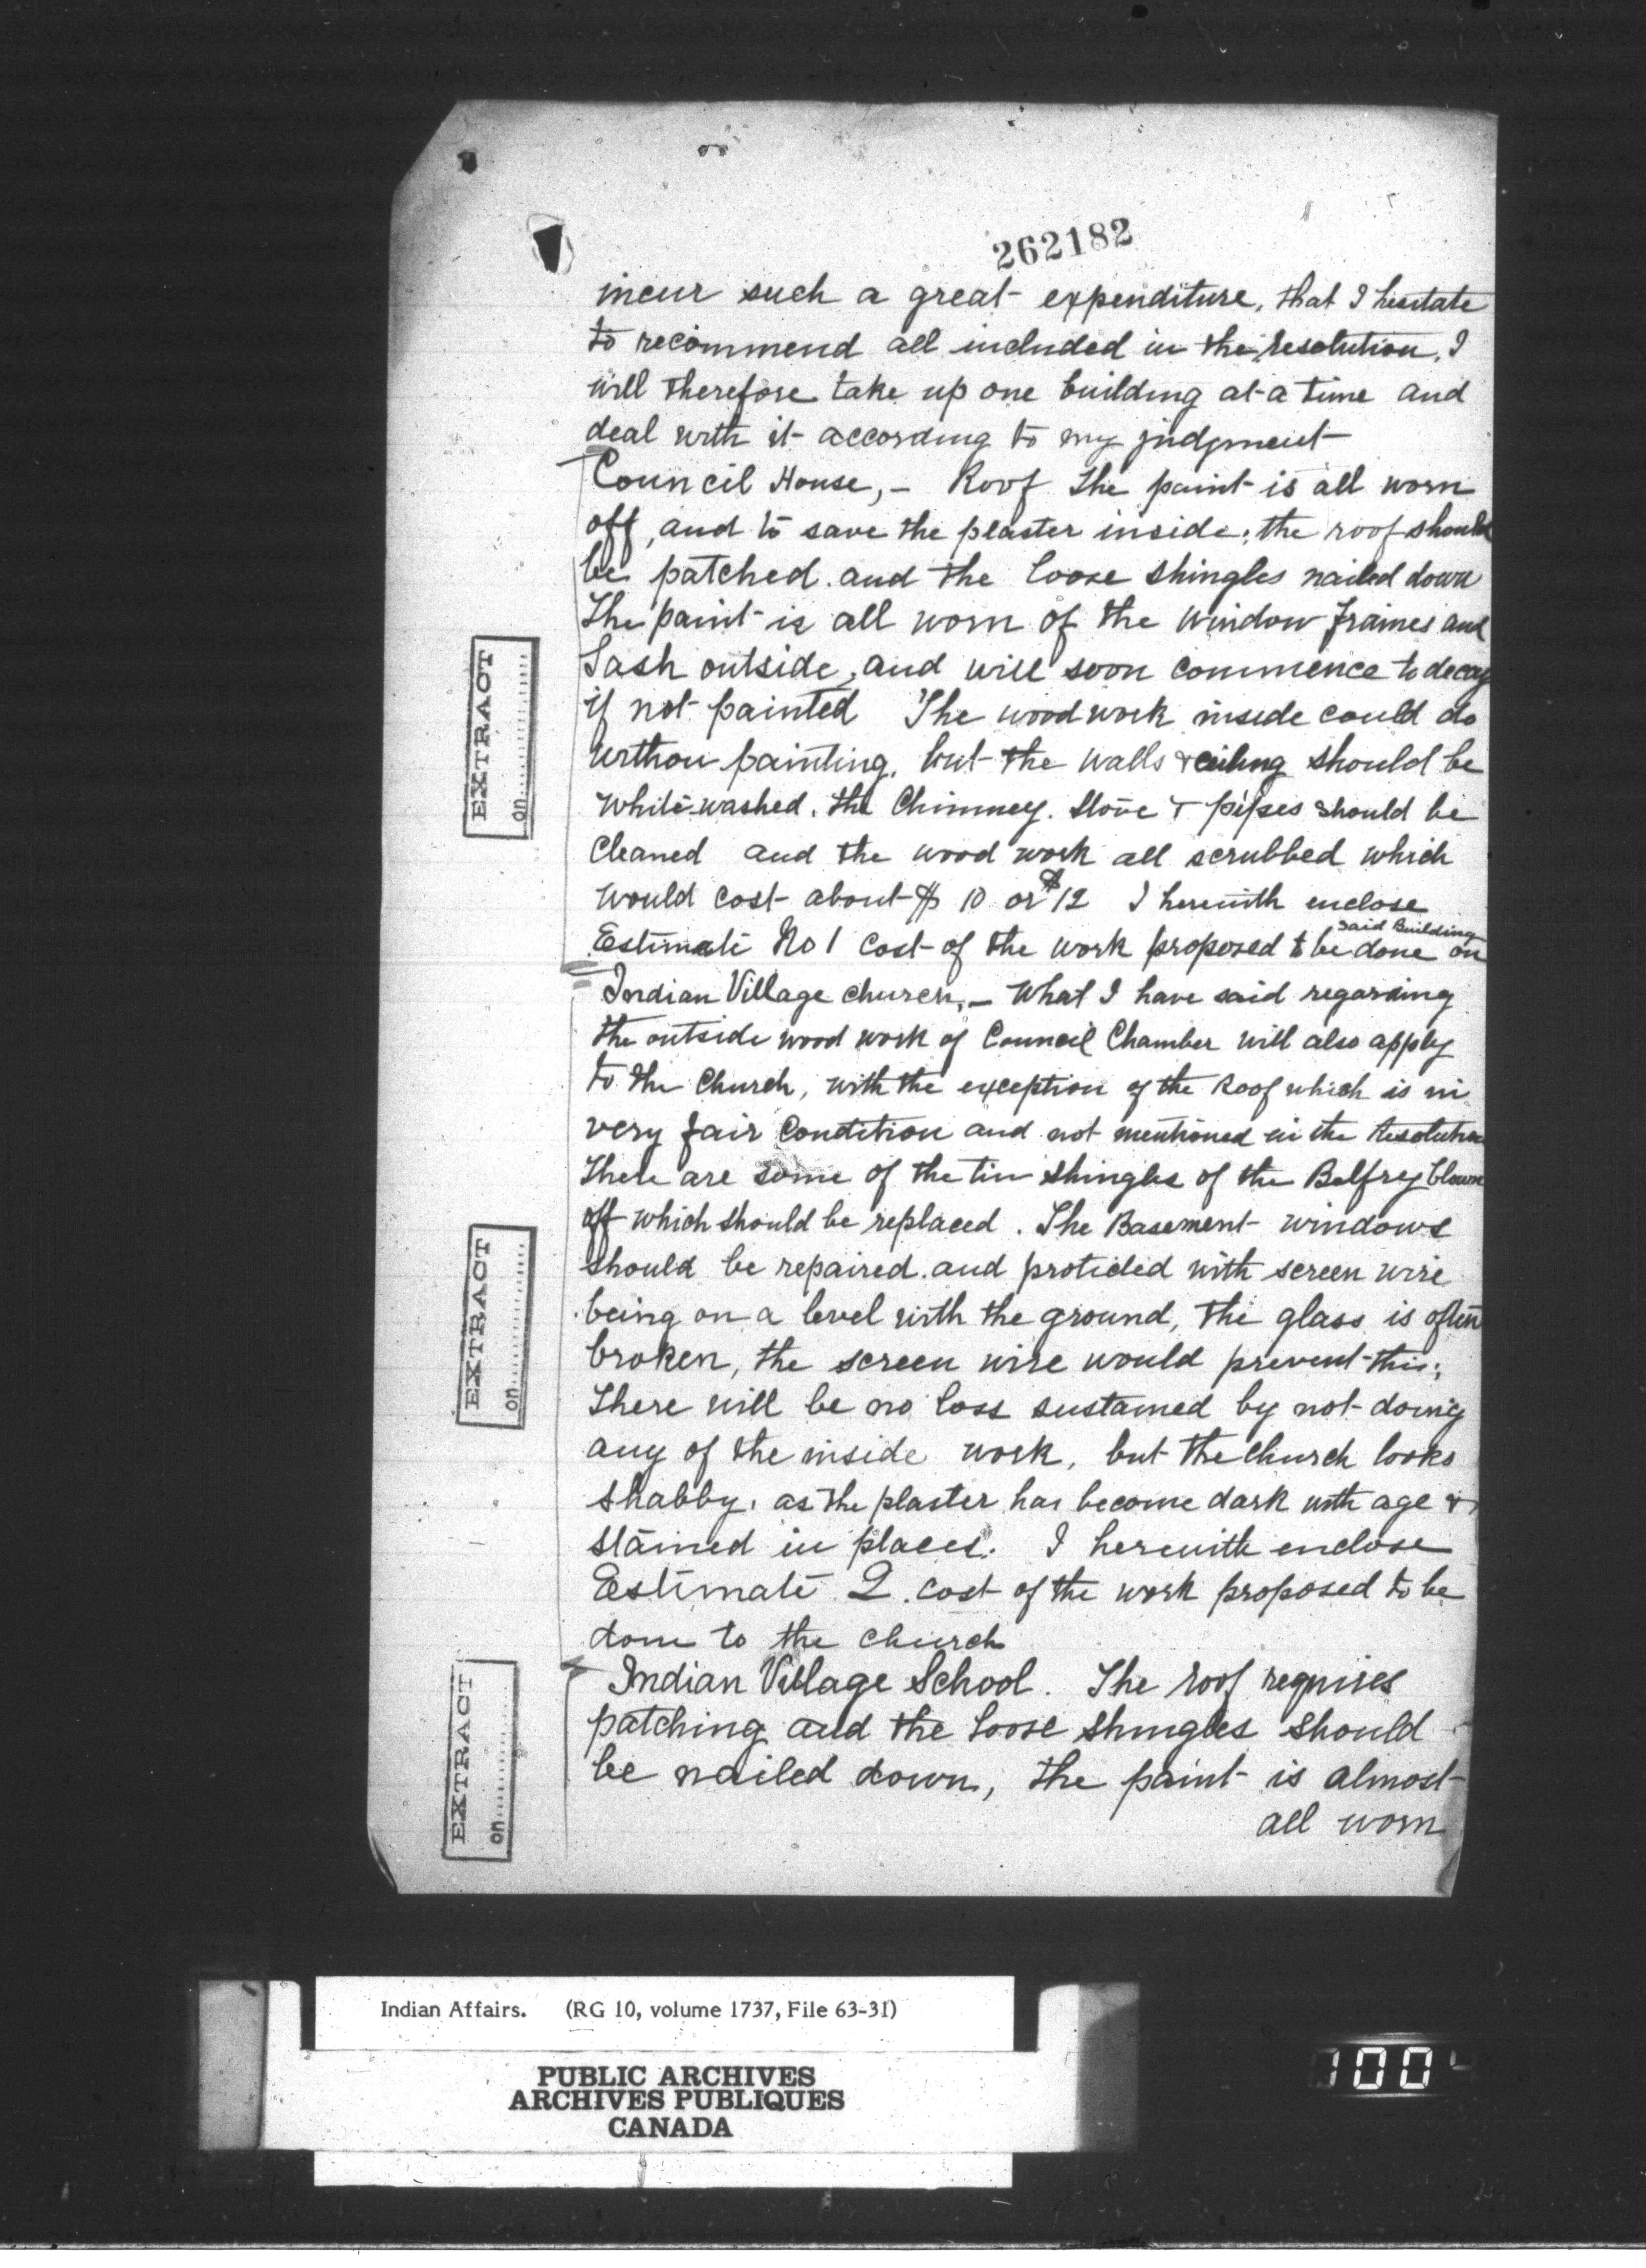 262182
incur such a great expenditure, that I hesitate
to recommend all included in the resolution, I
will therefore take up one building at a time and
deal with it according to my judgment
Council House, - Roof the paint is all worn
off, and to save the plaster inside, the roof should
be patched. and the loose shingles nailed down
The paint is all worn of the window frames and
Sash outside, and will soon commence to decay
if not painted The wood work inside could do
withou painting, but the walls & ceiling should be
white-washed, the Chimney. stove & pipes should be
cleaned and the wood work all scrubbed which
would cost about $ 10 or $12 I herewith enclose
said Building
Estimate No 1 cost of the work proposed to be done on
Indian Village church, - What I have said regarding
the outside wood work of Council Chamber will also apply
to the Church, with the exception of the Roof which is in
very fair condition and not mentioned in the Resolution
There are some of the tin shingles of the Belfrey blown
off which should be replaced. The Basement windows
should be repaired. and protected with screen wire
being on a level with the ground, the glass is often
broken, the screen wire would prevent this;
There will be no loss sustained by not doing
any of the inside work, but the church looks
shabby, as the plaster has become dark with age &
stained in places. I herewith enclose
Estimate 2. cost of the work proposed to be
done to the church
Indian Village School. The roof requires
patching and the loose shingles should
be nailed down, the paint is almost
all worn
EXTRACT
on
EXTRACT
on
EXTRACT
on
Indian Affairs. (RG 10, volume 1737, File 63-31)
PUBLIC ARCHIVES
ARCHIVES PUBLIQUES
CANADA
100